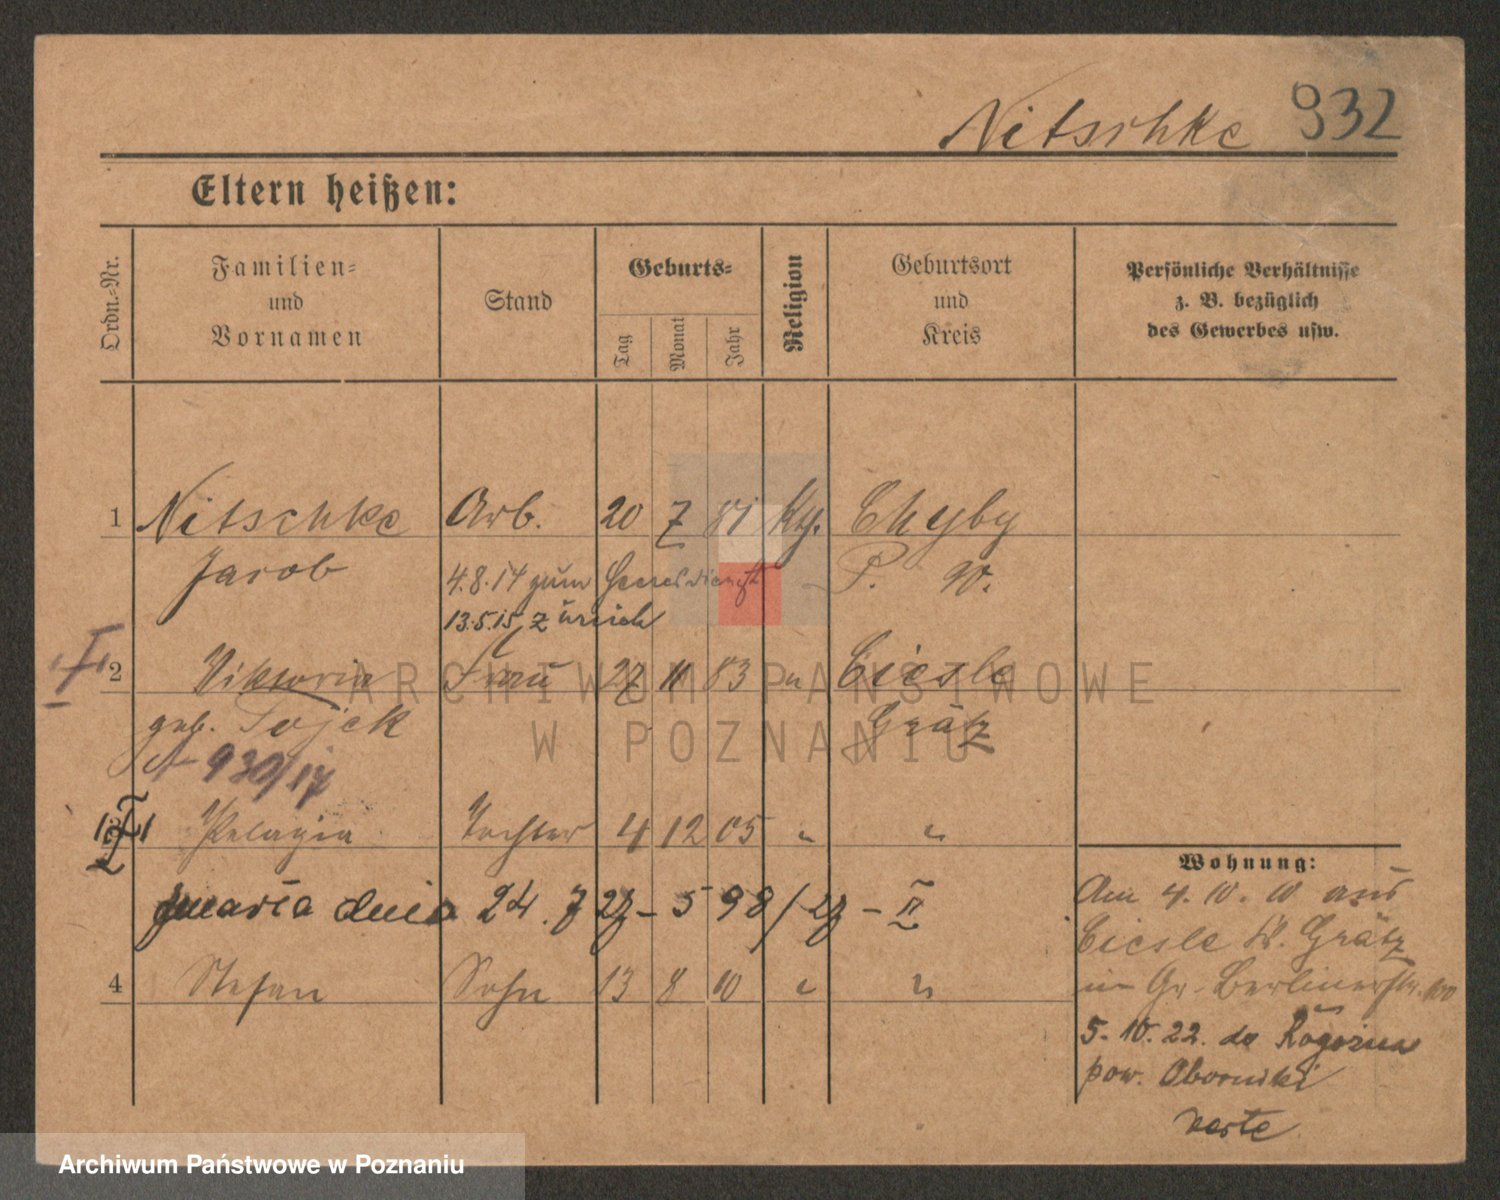 Nitschke 932
Eltern heißen:
Ordn.-Nr.
Familien-
und
Vornamen
Stand
Geburts-
Tag
Monat
Jahr
Religion
Geburtsort
und
Kreis
Persönliche Verhältnisse
z. B. bezüglich
des Gewerbes usw.
1 Nitschke Arb. 20 7 81 Kth. Chyby
Jacob 4.8.14 zum Heeresdienst P. W.
13.5.15 zurück
2 Viktoria Frau 27 11 83 " Ciesle
geb. Tojek Grätz
930/17
Pelagia Tochter 4 12 05 " "
zmarła dnia 24. 7 27 - 598/27 - II
4 Stefan Sohn 13 8 10 " "
Wohnung:
Am 4.10.10 aus
Ciesle K. Grätz
in Gr. Berlinerstr. 100
5.10.22. do Rogoźna
pow. Oborniki
verte
ARCHIWUM PAŃSTWOWE
W POZNANIU
Archiwum Państwowe w Poznaniu